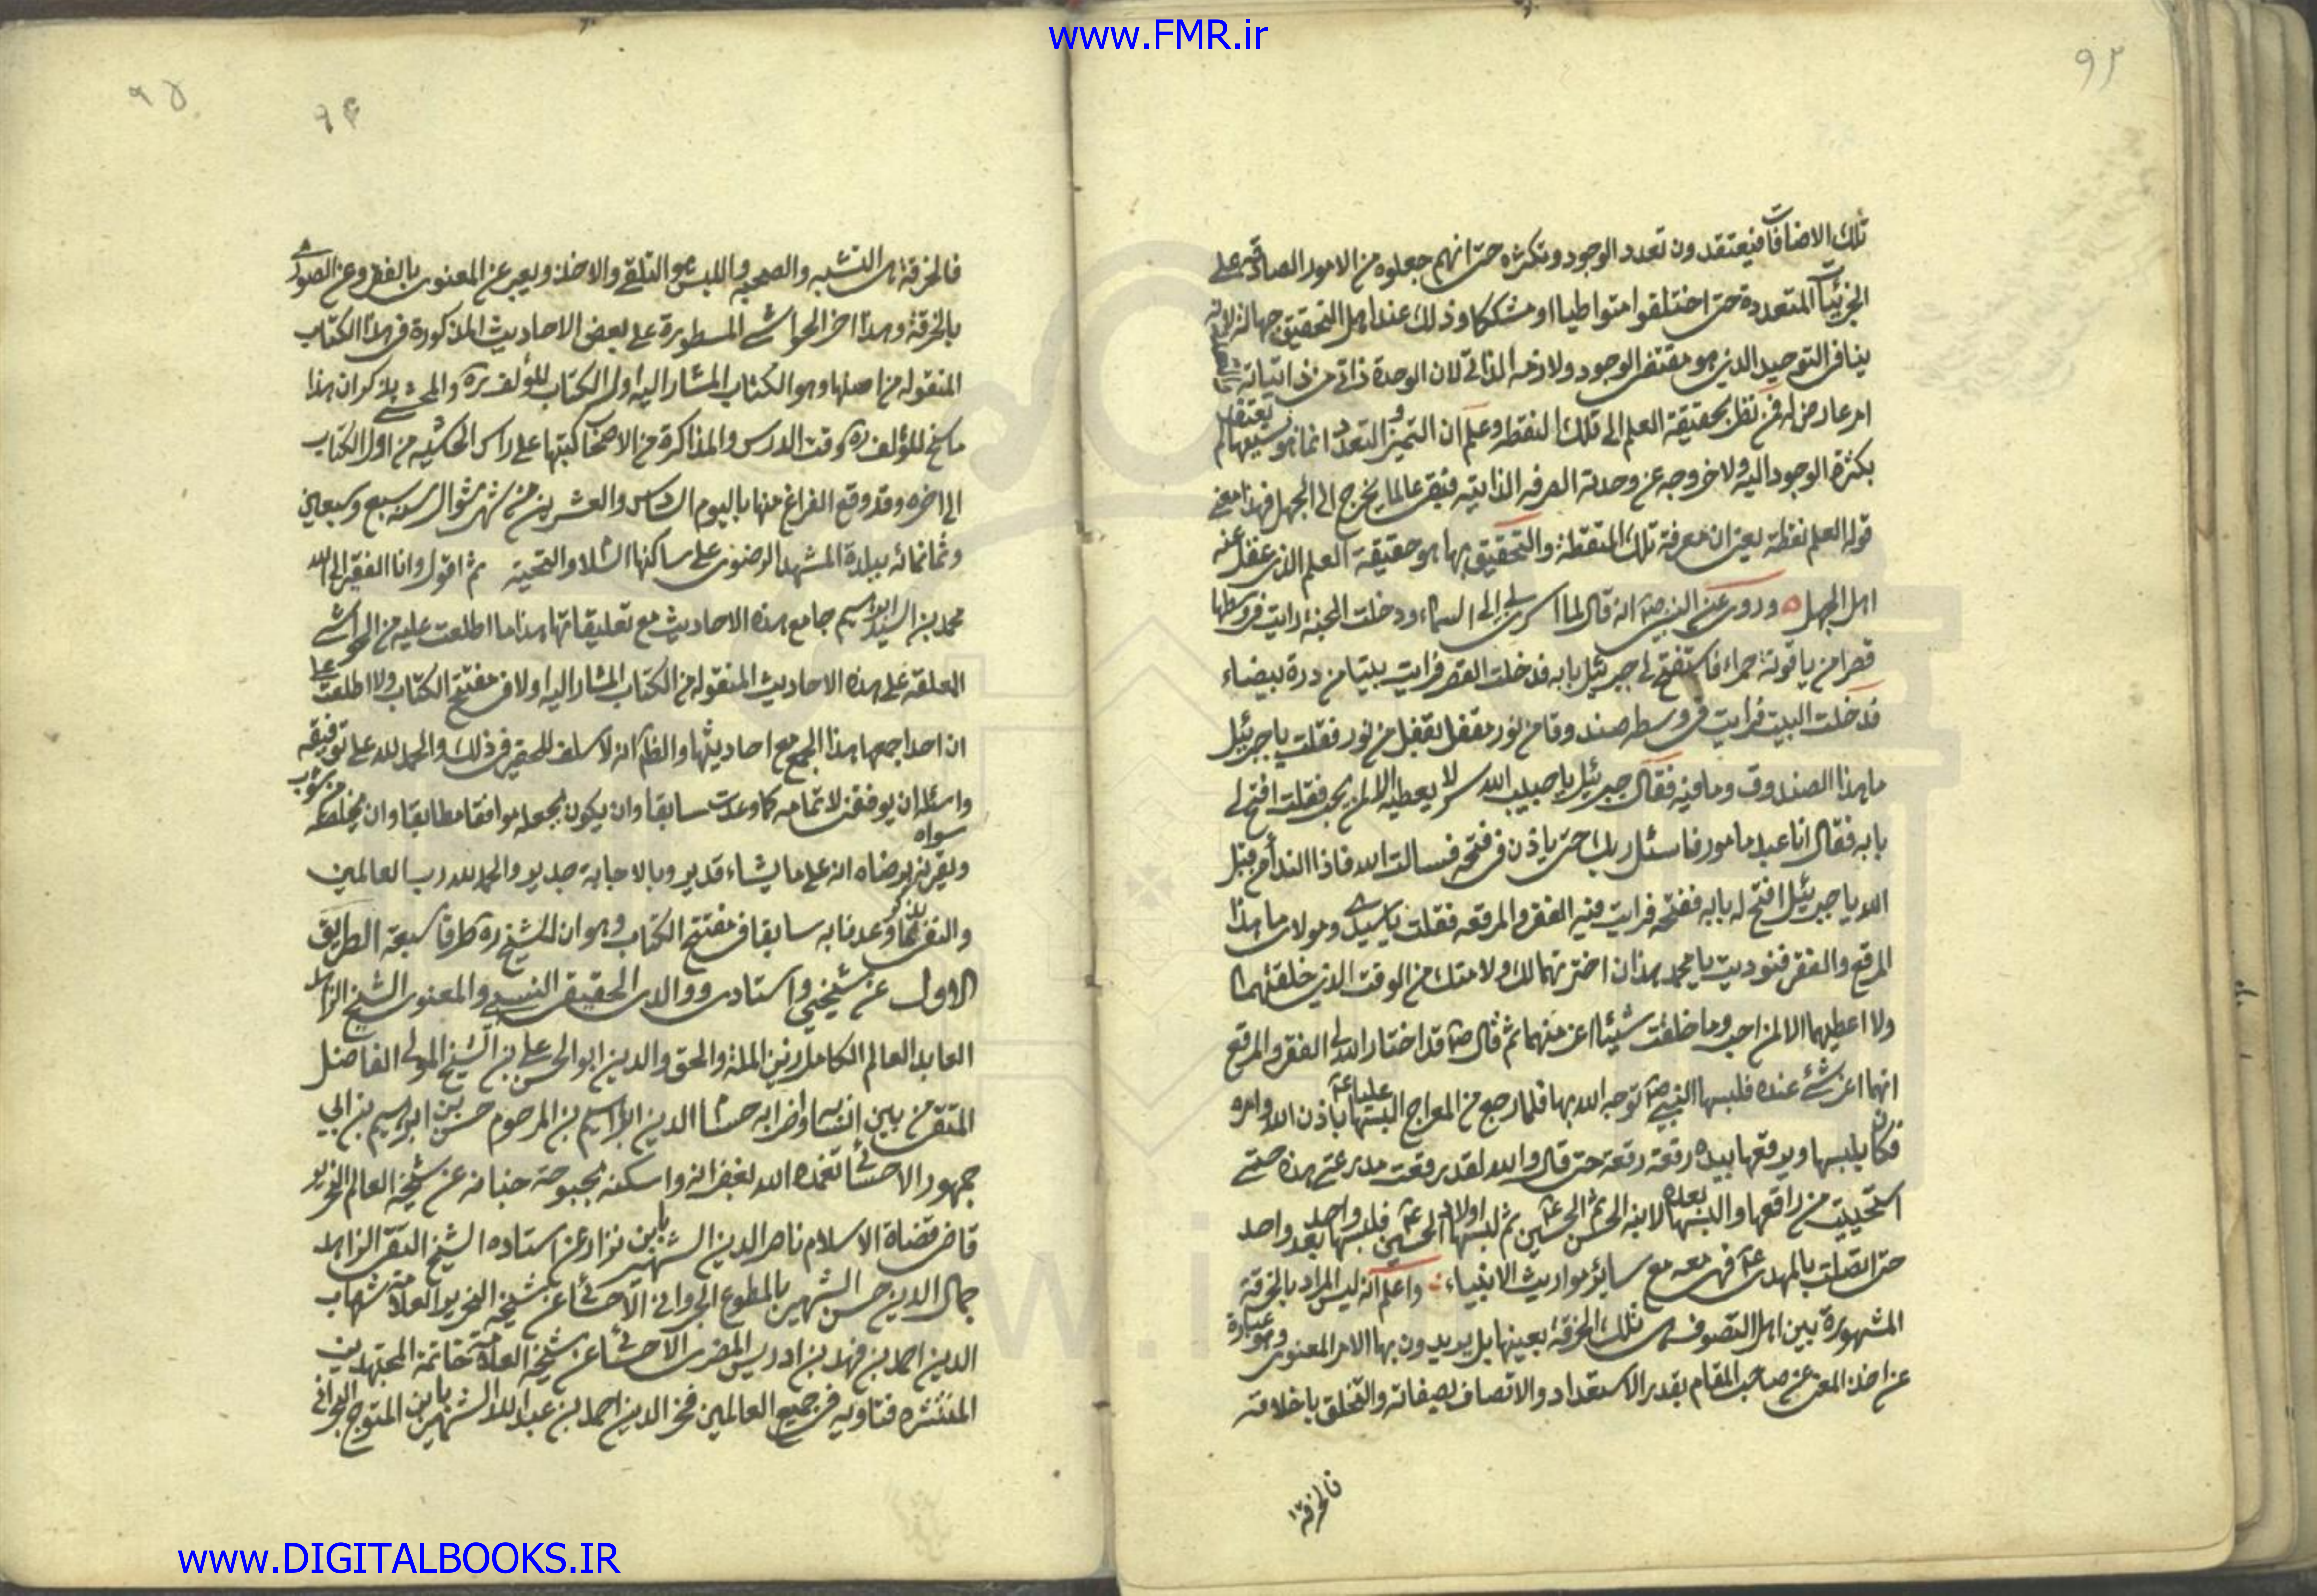 www.FMR.ir
٩٢
تلك الاضافات فيعتقدون تعدد الوجود وتكثره حتى انهم جعلوه من الامور الصادقه على
الجزئيات المتعددة حتى اختلقوا متواطيا او مشككا وذلك عند اهل التحقيق جهالة لانه
ينافى التوحيد الذى هو مقتضى الوجود ولازمه الذاتى لان الوحدة ذاتى من ذاتياته
امر عارض له فمن نظر بحقيقة العلم الى تلك النقطه وعلم ان التميز والتعدد انما هو
بكثرة الوجود اليه ولا خروجه عن وحدته الصرفه الذاتيه فبقى عالما يخرج الى الجهل فهذا معنى
قوله العلم نقطة يعنى ان معرفة تلك النقطة والتحقيق بها هو حقيقة العلم الذى غفل عنه
اهل الجهل وروى عن النبى ص انه قال لما اسرى بى الى السماء ودخلت الجنة رايت فى وسطها
قصرا من ياقوتة حمراء فاستفتح لى جبرئيل بابه فدخلت القصر فرايت بيتا من درة بيضاء
فدخلت البيت فرايت فى وسطه صندوقا من نور مقفل بقفل من نور فقلت يا جبرئيل
ما هذا الصندوق وما فيه فقال جبرئيل يا حبيب الله سر لا يعطيه الا لمن يحب فقلت افتح لى
بابه فقال انا عبد مامور فاسئل ربك حتى ياذن فى فتحه فسالت الله فاذا النداء من قبل
الله يا جبرئيل افتح له بابه ففتحه فرايت فيه الفقر والمرقعه فقلت يا سيدى ومولاى ما هذا
المرقع والفقر فنوديت يا محمد هذان اخترتهما لك ولامتك من الوقت الذى خلقتهما
ولا اعطيهما الا لمن احب وما خلقت شيئا اعز منهما ثم قال ص قد اختار الله لى الفقر والمرقع
انهما اعز شئ عنده فلبسها النبى ص توجه الله بها فلما رجع من المعراج البسها عليا ع باذن الله وامره
فكان يلبسها ويرقعها بيده رقعة رقعة حتى قال والله لقد رقعت مدرعتى هذه حتى
استحييت من راقعها والبسها بعده لابنه الحسن ثم الحسين ع ثم لبسها اولاد الحسين ع فلبسها واحد بعد واحد
حتى اتصلت بالمهدى ع فهى معه مع سائر مواريث الانبياء واعلم انه ليس المراد بالخرقة
المشهورة بين اهل التصوف هى تلك الخرقة بعينها بل يريدون بها الامر المعنوى وهو عبارة
عن اخذ المعنى عن صاحب المقام بقدر الاستعداد والاتصاف بصفاته والتخلق باخلاقه
فالخرقة
٩٥
٩٤
فالخرقة هى التشبه والصحبة واللبس هو التلقى والاخذ ويعبر عن المعنوى بالفقر وعن الصورى
بالخرقة وهذا اخر الحواشى المسطورة على بعض الاحاديث المذكورة فى هذا الكتاب
المنقوله من اصلها وهو الكتاب المشار اليه اول الكتاب للمؤلف ره والمحشى يذكر ان هذا
ما سنح للمؤلف ره وقت الدرس والمذاكرة مع الاصحاب كتبها على راس الحاشيه من اول الكتاب
الى اخره وقد وقع الفراغ منها باليوم السادس والعشرين من شهر شوال سنه سبع وسبعين
وثمانمائه ببلدة المشهد الرضوى على ساكنها السلام والتحية ثم اقول وانا الفقير الى الله
محمد بن السيد ابراهيم جامع هذه الاحاديث مع تعليقاتها هذا ما اطلعت عليه من الحواشى
المعلقة على هذه الاحاديث المنقوله من الكتاب المشار اليه اولا فى مفتتح الكتاب ولا اطلعت على
ان احدا جمعها هذا الجمع مع احاديثها والظاهر انه لا سلف للحقير فى ذلك والحمد لله على توفيقه
واسئله ان يوفقنى لاتمامه كما وعدت سابقا وان يكون مجعوله موافقا مطابقا وان يخلصه من شوب
سواه
ويقربنى برضاه انه على ما يشاء قدير وبالاجابة جدير والحمد لله رب العالمين
ولنذكر ما وعدنا به سابقا فى مفتتح الكتاب وهو ان للشيخ ره طرقا سبعة الطريق
الاول عن شيخى واستادى ووالدى الحقيقى النسبى والمعنوى الشيخ الزاهد
العابد العالم الكامل زين الملة والحق والدين ابو الحسن على بن الشيخ المولى الفاضل
المتقى من بين انسابه واضرابه حسام الدين ابراهيم بن المرحوم حسن بن ابراهيم بن ابى
جمهور الاحسائى تغمده الله بغفرانه واسكنه بحبوحة جنانه عن شيخه العالم النحرير
قاضى قضاة الاسلام ناصر الدين الشهير بابن نزار عن استاده الشيخ التقى الزاهد
جمال الدين حسن الشهير بالمطوع الجروانى الاحسائى عن شيخه النحرير العلامة شهاب
الدين احمد بن فهد بن ادريس المضرى الاحسائى عن شيخه العلامة خاتمة المجتهدين
المنتشره فتاويه فى جميع العالمين فخر الدين احمد بن عبد الله الشهير بابن المتوج البحرانى
www.DIGITALBOOKS.IR